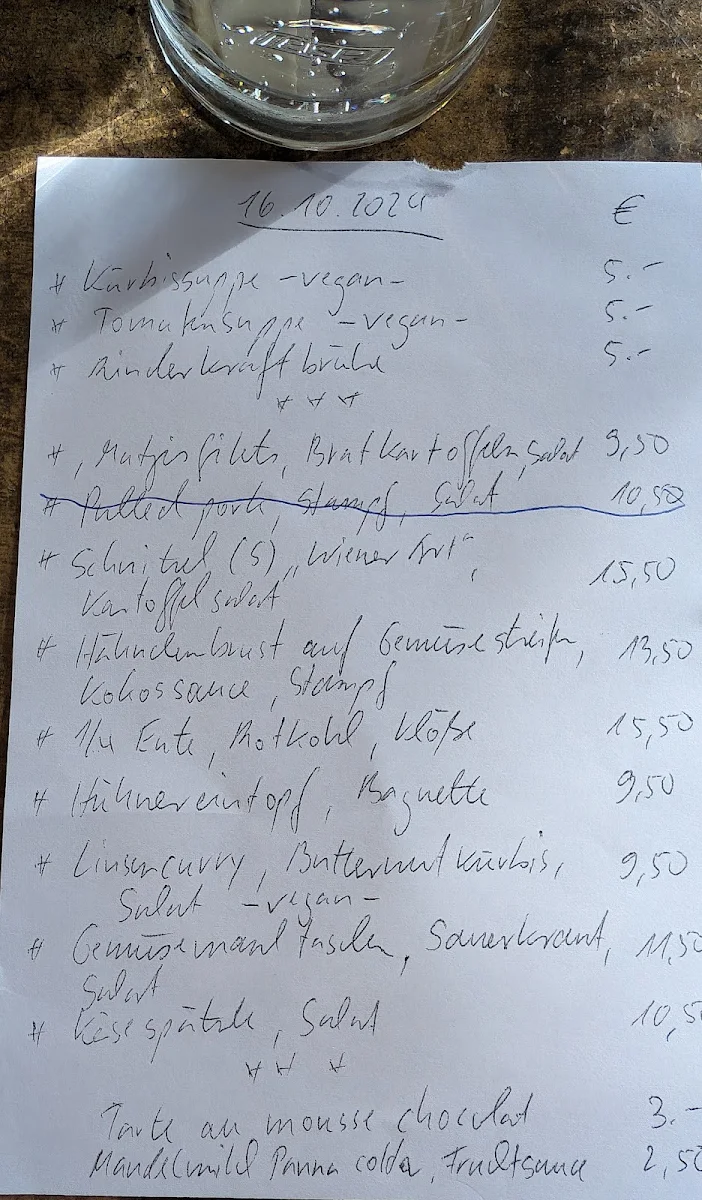 16.10.2024 €
* Kürbissuppe -vegan- 5.-
* Tomatensuppe -vegan- 5.-
* Rinderkraftbrühe 5.-
* * *
* , Matjesfilets, Bratkartoffeln, Salat 9,50
* Pulled pork, Stampf, Salat 10,50
* Schnitzel (S) „Wiener Art", 15,50
Kartoffelsalat
* Hähnchenbrust auf Gemüsestreifen, 13,50
Kokossauce, Stampf
* 1/4 Ente, Rotkohl, Klöße 15,50
* Hühnereintopf, Baguette 9,50
* Linsencurry, Butternutkürbis, 9,50
Salat -vegan-
* Gemüsemaultaschen, Sauerkraut, 11,50
Salat
* Käsespätzle, Salat 10,50
* * *
Tarte au mousse chocolat 3.-
Mandelmilch Panna cotta, Fruchtsauce 2,50